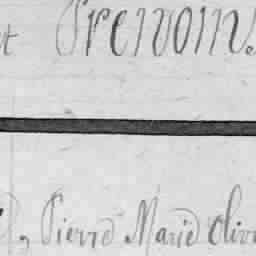 et Prenoms.
, Pierre Marie Oliv